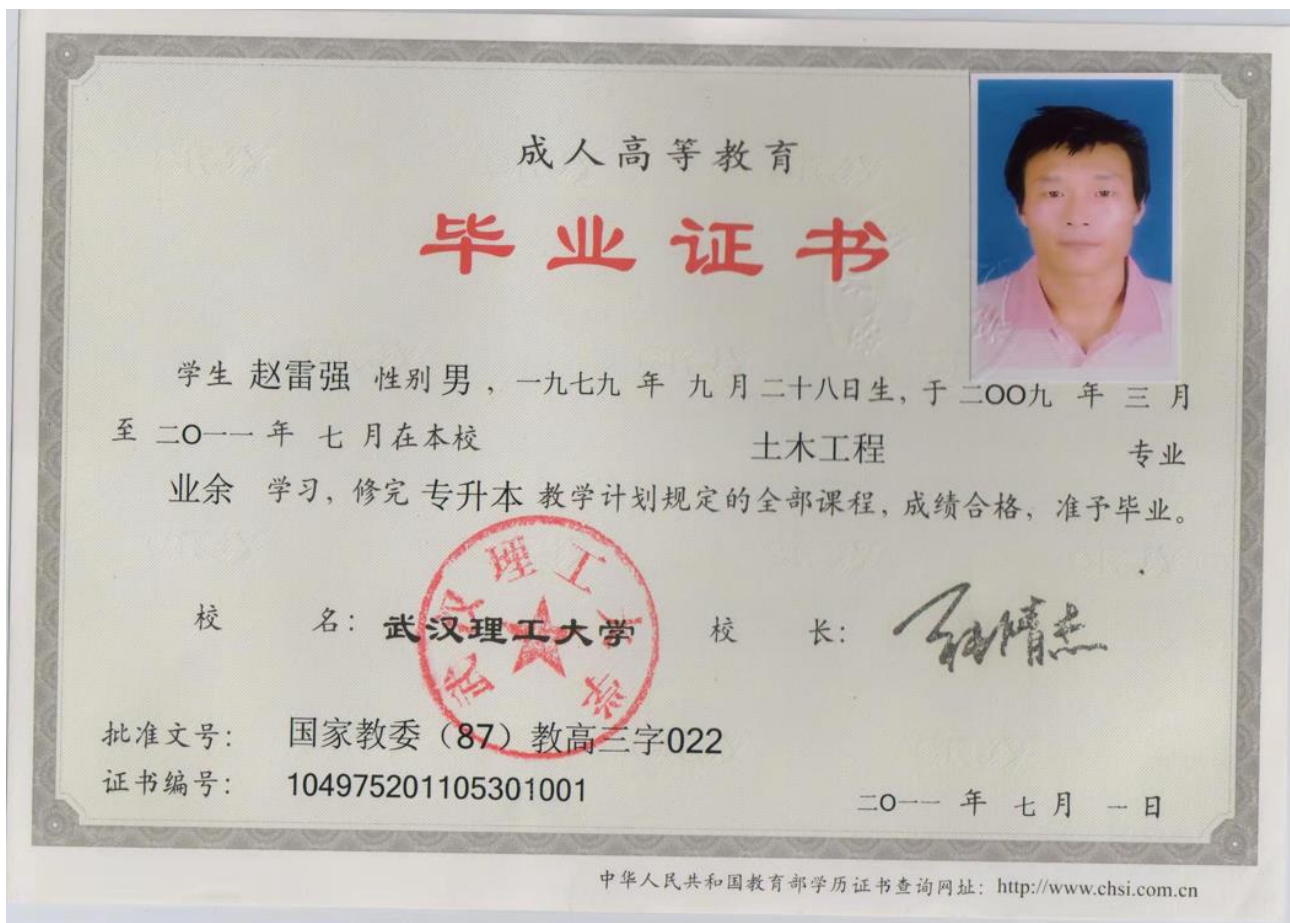 成人高等教育
毕业证书
学生 赵雷强 性别 男 ，一九七九 年 九 月 二十八日生，于 二OO九 年 三 月
至 二O一一 年 七 月在本校 土木工程 专业
业余 学习，修完 专升本 教学计划规定的全部课程，成绩合格，准予毕业。
武汉理工大学
校 名：武汉理工大学 校 长：
批准文号： 国家教委（87）教高三字022
证书编号： 104975201105301001
二O一一 年 七 月 一 日
中华人民共和国教育部学历证书查询网址：http://www.chsi.com.cn